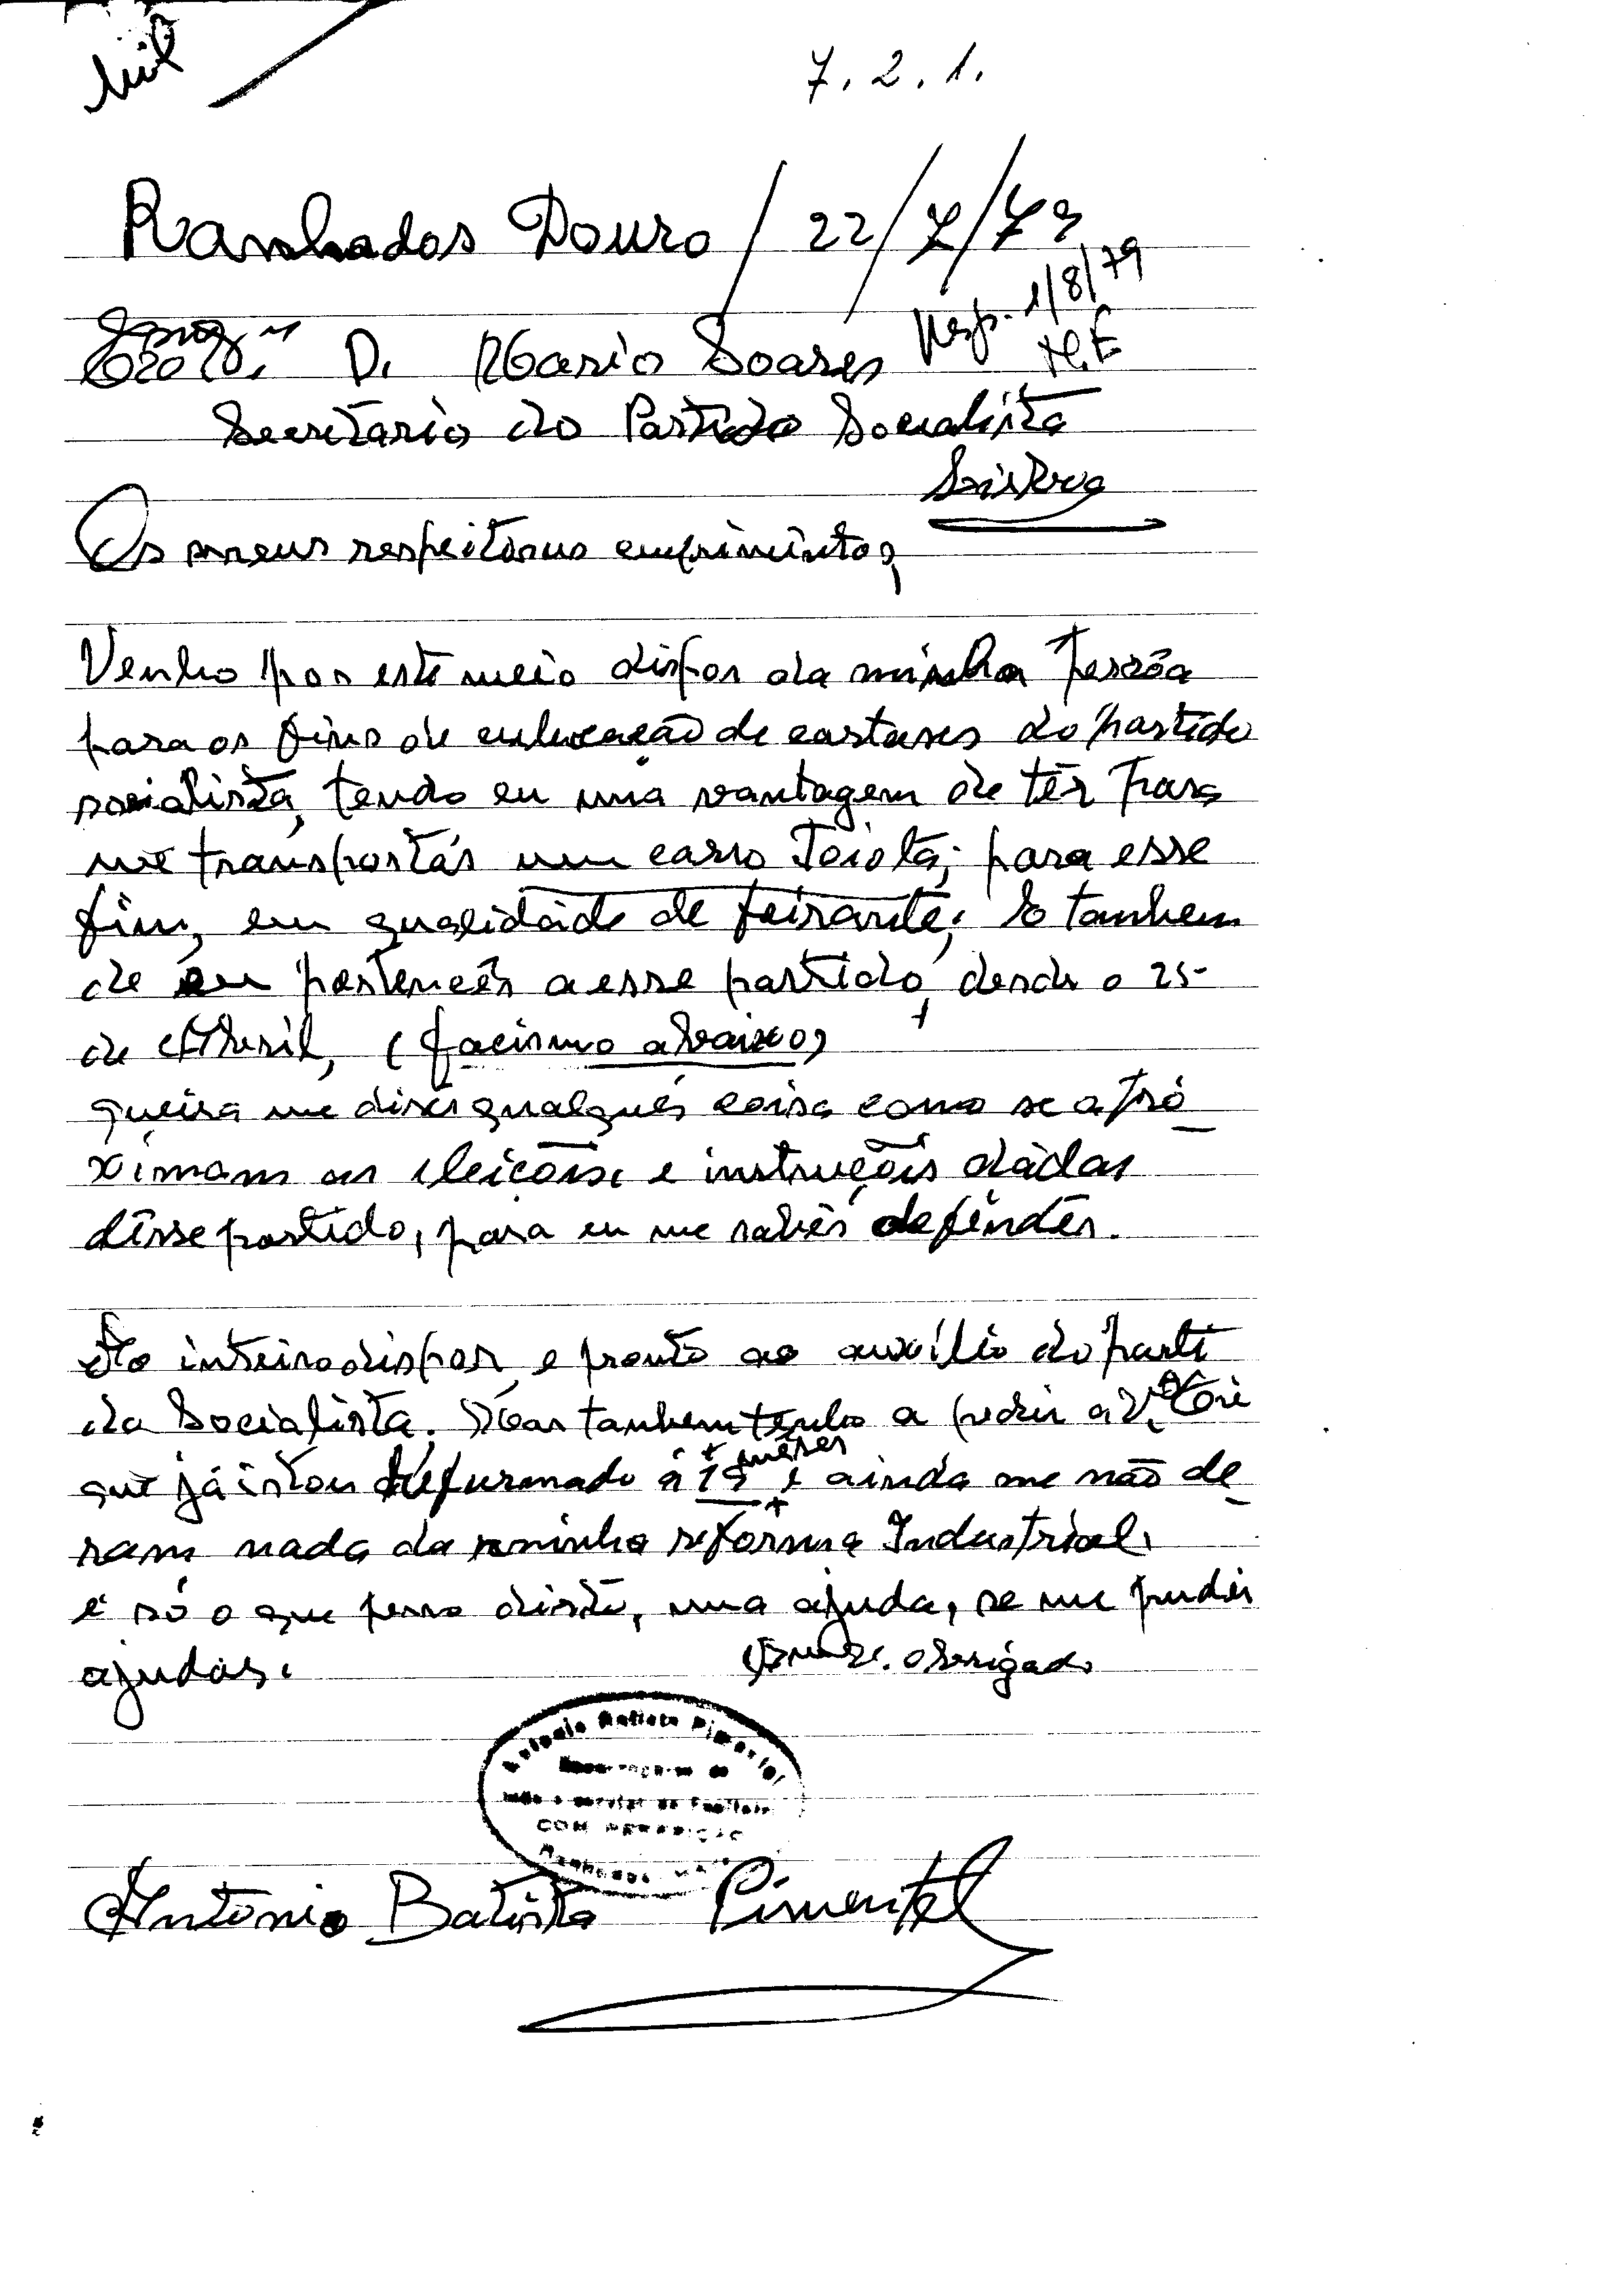 7.2.1.
Ranhados Douro / 22/7/79
Resp. 1/8/79
D. Mario Soares
Secritario do Partido Socialista
Os meus respeitosus cumprimintos,
Venho por este meio dispor da minha Pessôa
para os fins de culucação de cartases do partido
socialista, tendo eu uma vantagem de têr para
me transportás um carro Toiota; para esse
fim, em qualidade de feirante; E tambem
de eu pertencês a esse partido, desde o 25-
de Abril, (facismo abaixo)
queira me dizer qualqués coisa como se apró
ximam as eleicões, e instruçõis dàdas
dêsse partido, para eu me sabês defendês.
Ao inteiro dispor, e pronto ao auxílio do parti
do Socialista. Mas tambem tenho a pedir a V.
que já istou Refurmado à 19 mêses e ainda me não de
ram nada da minha reforma Industrial.
é só o que peço disto, uma ajuda, se me pudés
ajudás. obrigado
Antonio Batista Pimentel
COM
Antonio Batista Pimentel